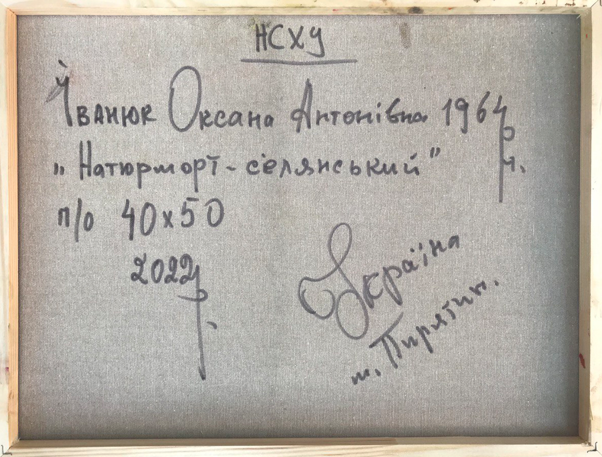 НСХУ
Іванюк Оксана Антонівна 1964 р.н.
„Натюрморт-селянський"
п/о 40х50
2022 р.
Україна
м. Пирятин.